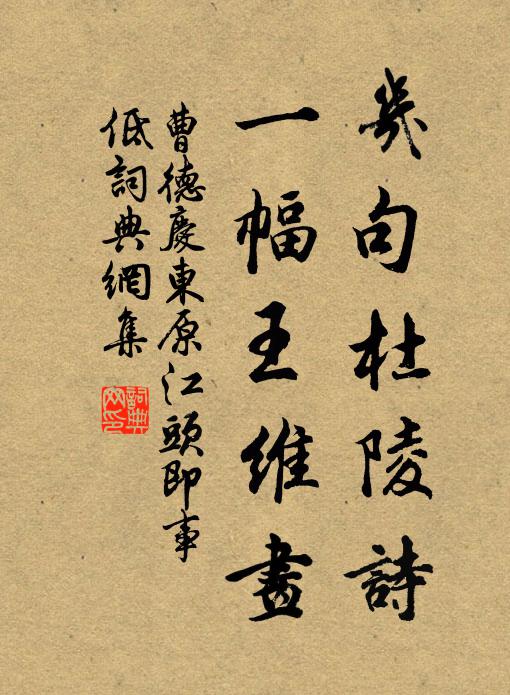 幾句杜陵詩
一幅王維畫
曹德慶東原江頭即事
低詞典網集
詞典
網印